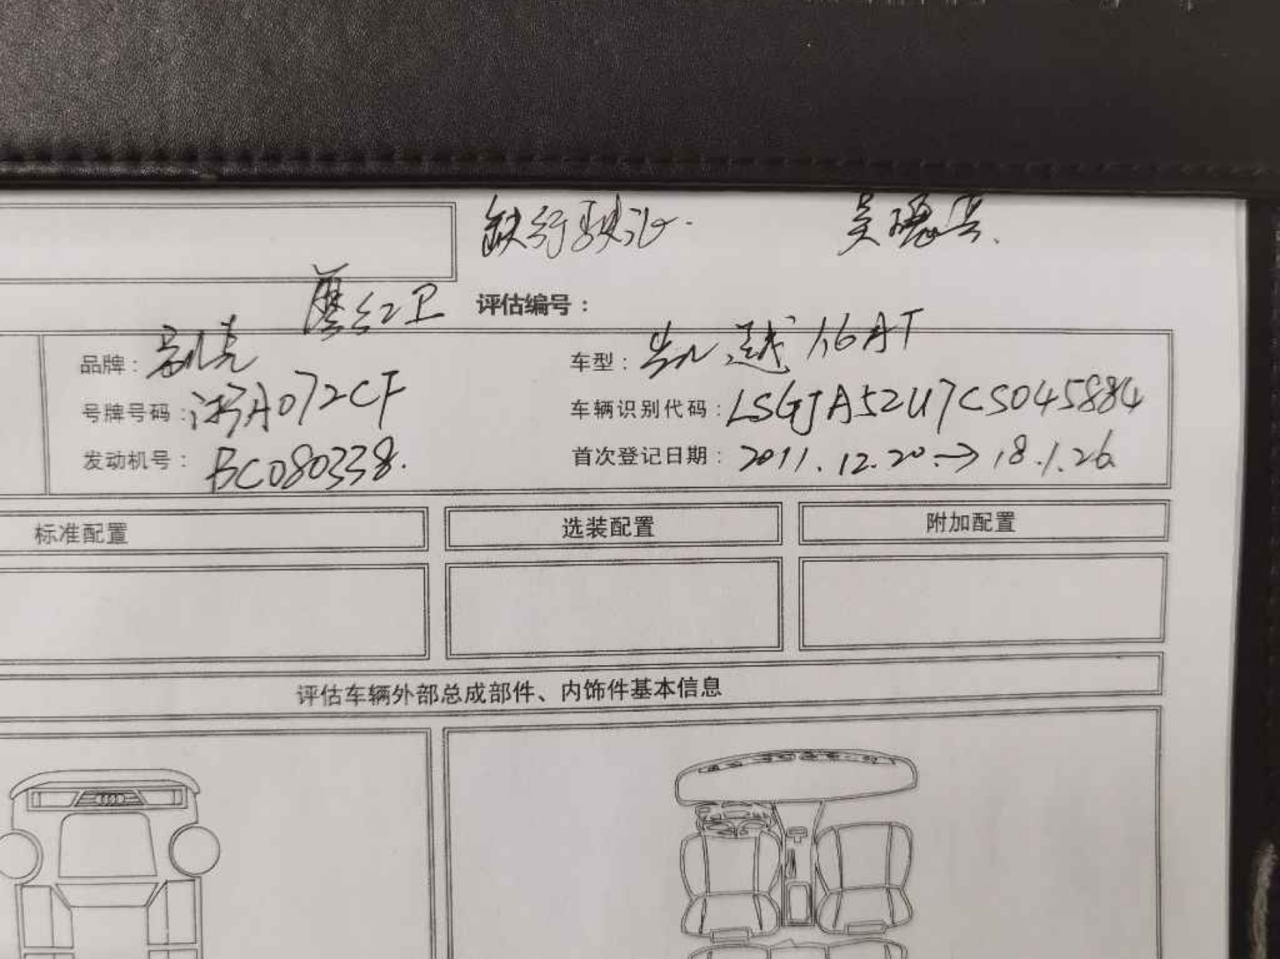 缺行驶证. 吴德兴.
廖红卫 评估编号：
品牌：别克 车型：凯越 1.6AT
号牌号码：浙A072CF 车辆识别代码：LSGJA52U7CS045884
发动机号：BC080338. 首次登记日期：2011.12.20.→18.1.26
标准配置 选装配置 附加配置
评估车辆外部总成部件、内饰件基本信息